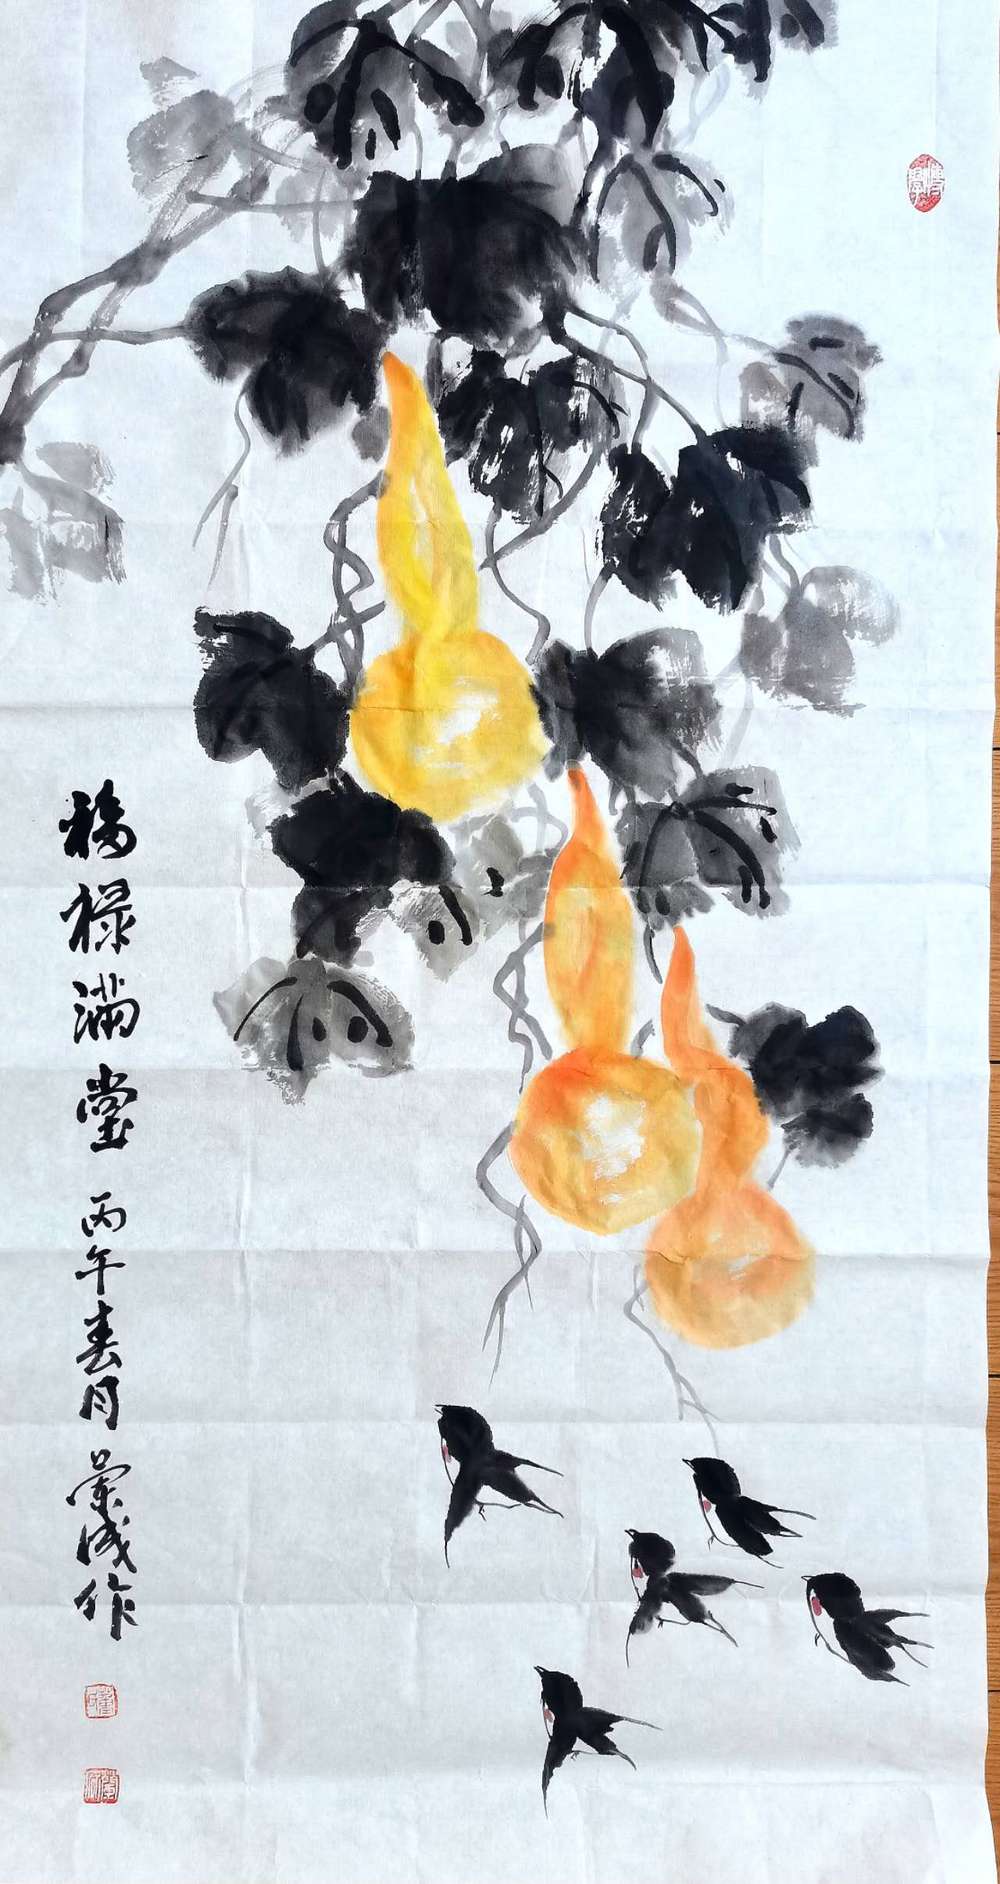 福禄满堂 丙午春月 兰成作